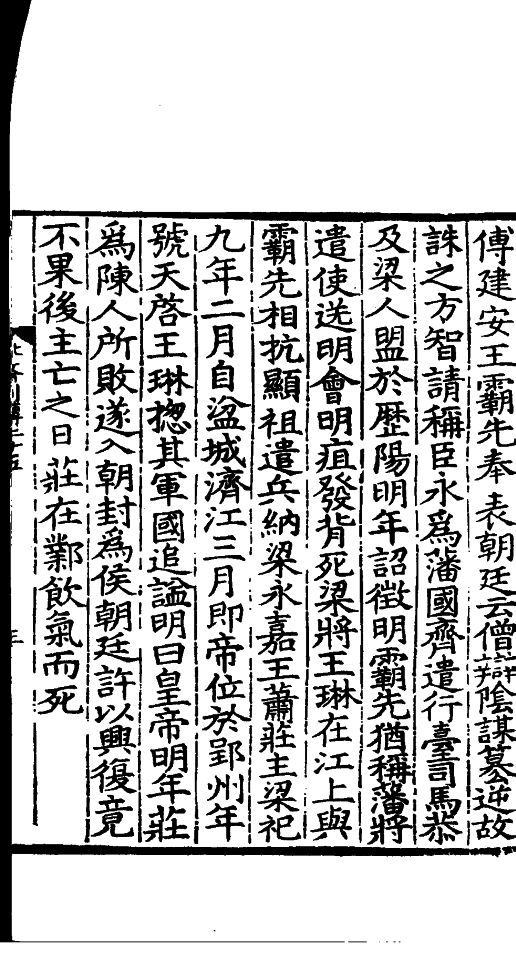 傅建安王霸先奉表朝廷云僧辯陰謀篡逆故
誅之方智請稱臣永爲藩國齊遣行臺司馬恭
及梁人盟於歷陽明年詔徵明霸先猶稱藩將
遣使送明會明疽發背死梁將王琳在江上與
霸先相抗顯祖遣兵納梁永嘉王蕭莊主梁祀
九年二月自湓城濟江三月即帝位於郢州年
號天啓王琳揔其軍國追謚明曰皇帝明年莊
爲陳人所敗遂入朝封爲侯朝廷許以興復竟
不果後主亡之日莊在鄴飲氣而死
三